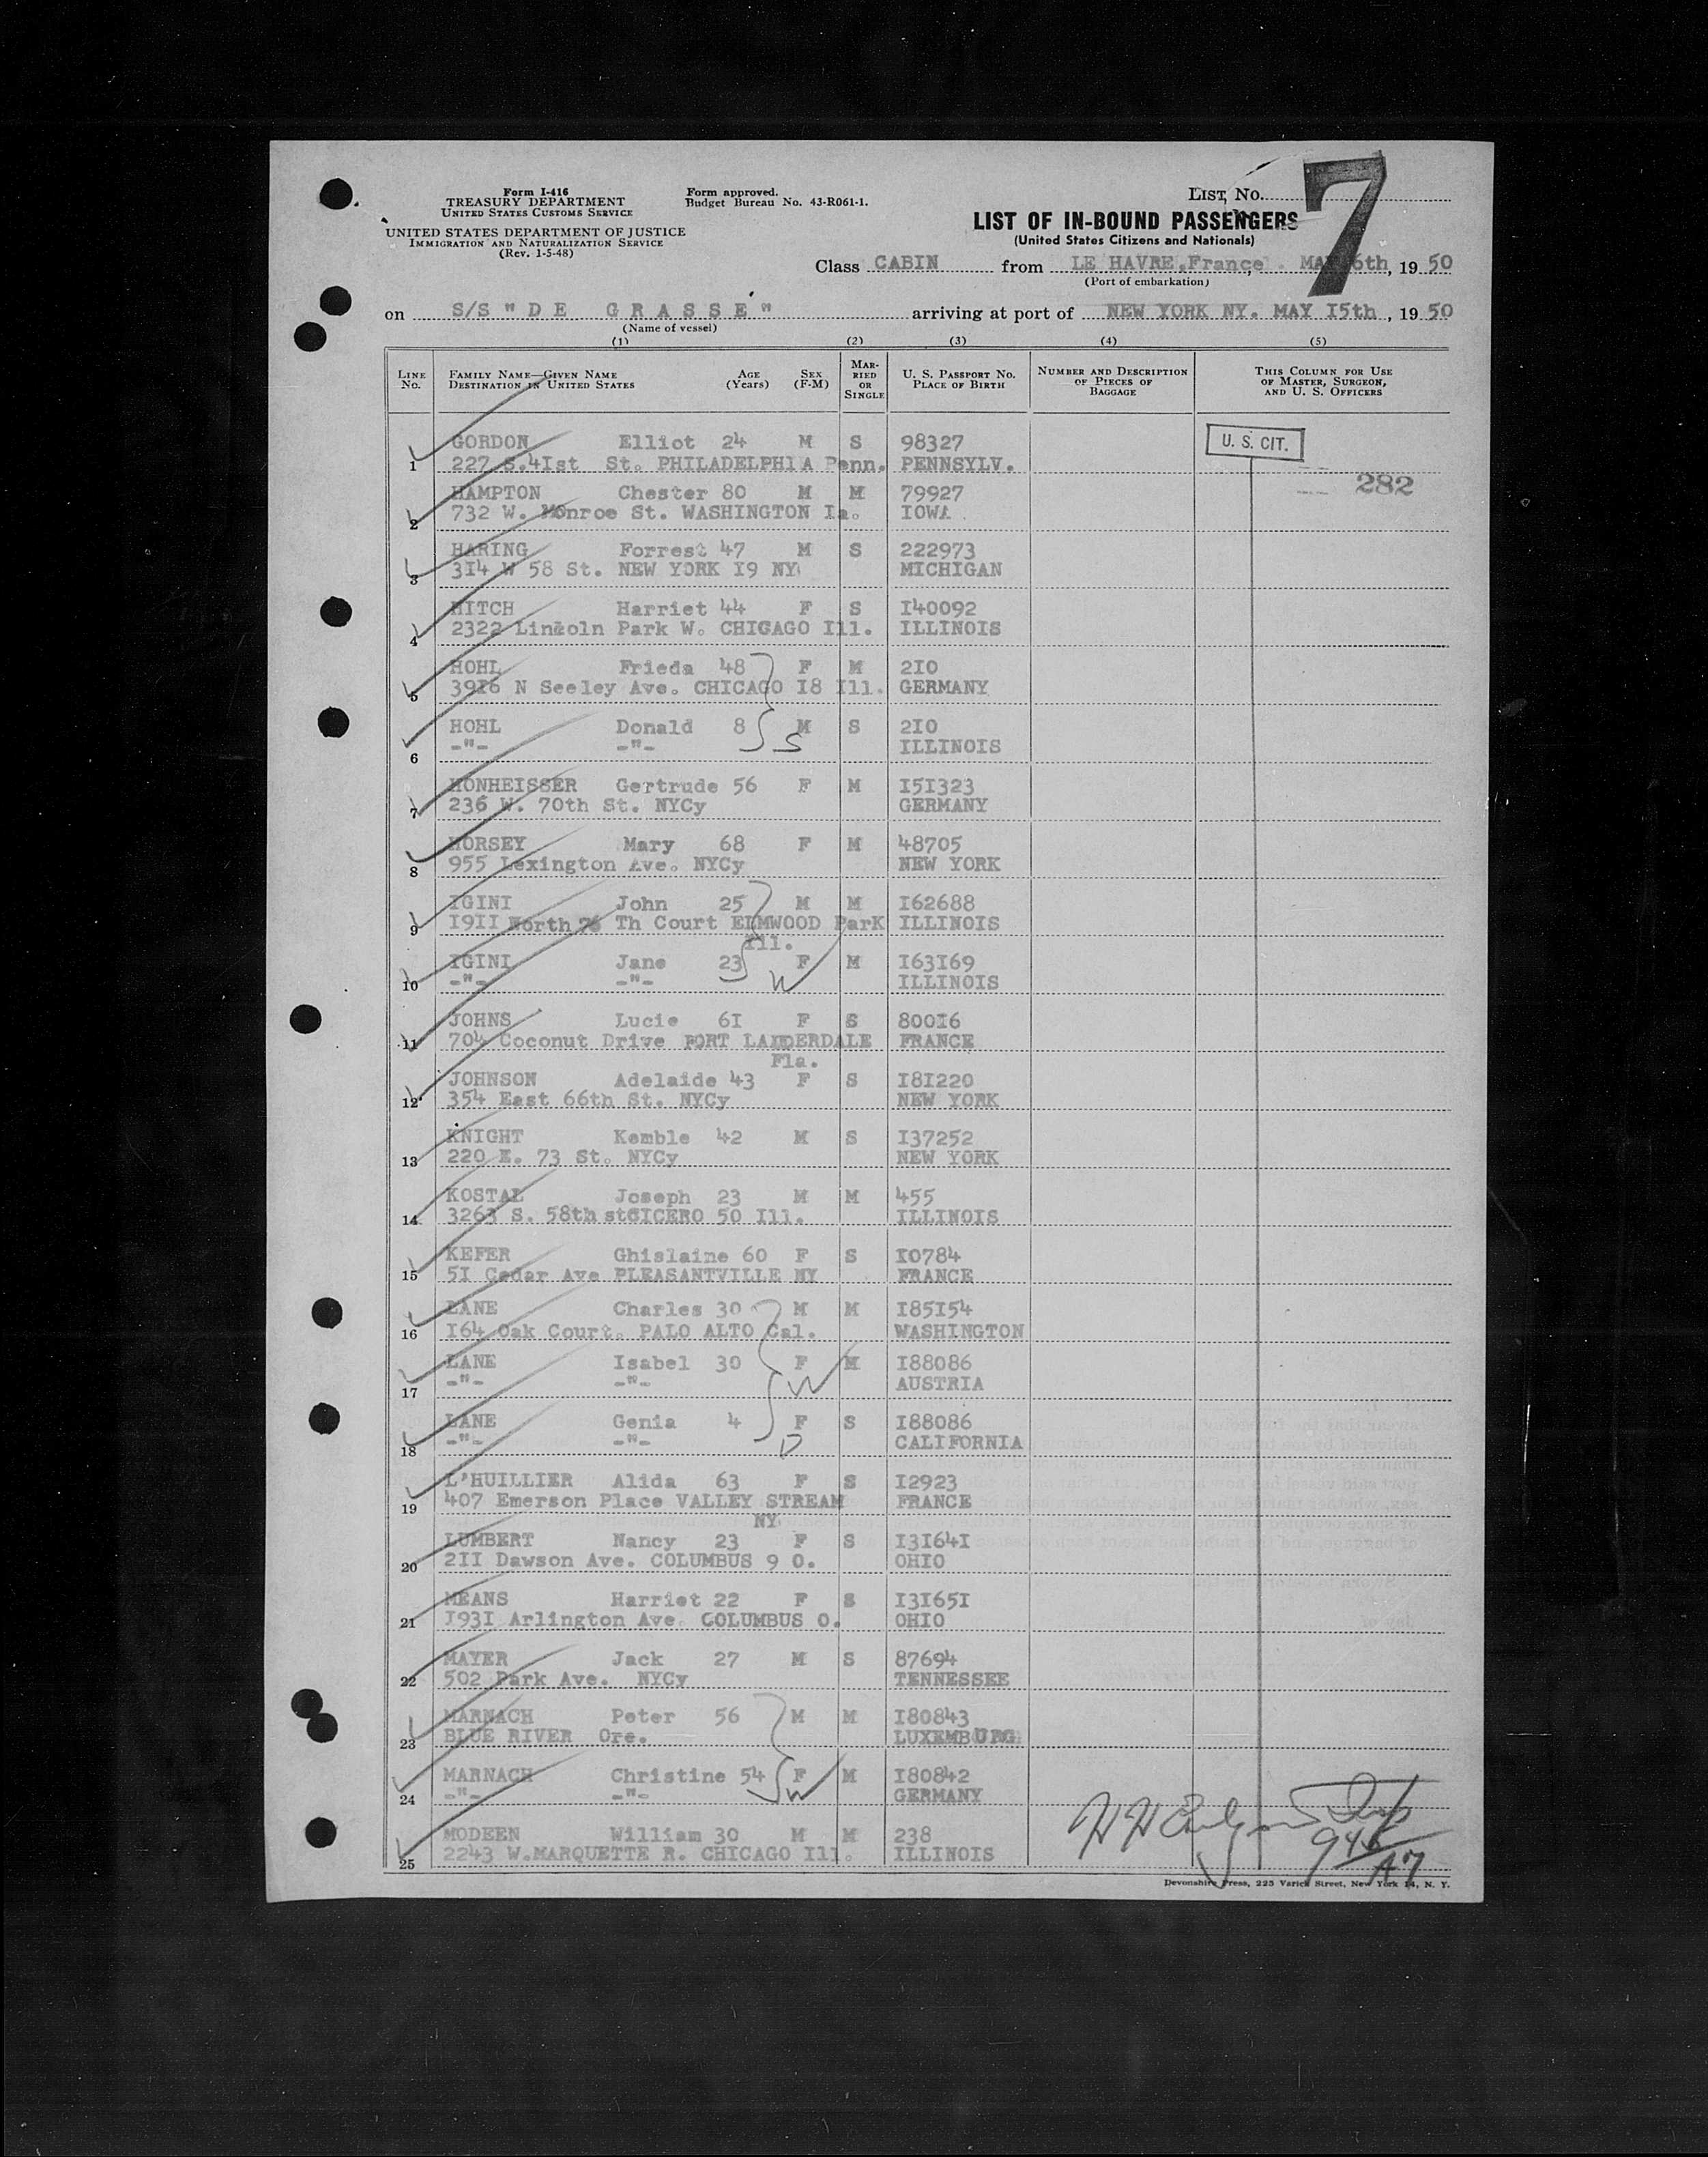 Form I-416
TREASURY DEPARTMENT
UNITED STATES CUSTOMS SERVICE
UNITED STATES DEPARTMENT OF JUSTICE
IMMIGRATION AND NATURALIZATION SERVICE
(Rev. 1-5-48)
Form approved.
Budget Bureau No. 43-R061-1.
LIST NO. 7
LIST OF IN-BOUND PASSENGERS
(United States Citizens and Nationals)
Class CABIN from LE HAVRE,France, MAY 6th, 19 50
(Port of embarkation)
on S/S "DE GRASSE" arriving at port of NEW YORK NY. MAY I5th, 19 50
(Name of vessel)
(1) (2) (3) (4) (5)
LINE No. FAMILY NAME—GIVEN NAME DESTINATION IN UNITED STATES AGE (Years) SEX (F-M) MARRIED OR SINGLE U. S. PASSPORT NO. PLACE OF BIRTH NUMBER AND DESCRIPTION OF PIECES OF BAGGAGE THIS COLUMN FOR USE OF MASTER, SURGEON, AND U. S. OFFICERS
GORDON Elliot 24 M S 98327 U. S. CIT.
1 227 S.4Ist St. PHILADELPHIA Penn. PENNSYLV.
282
HAMPTON Chester 80 M M 79927
2 732 W. Monroe St. WASHINGTON Ia. IOWA
HARING Forrest 47 M S 222973
3 3I4 W 58 St. NEW YORK I9 NY MICHIGAN
HITCH Harriet 44 F S I40092
4 2322 Lincoln Park W. CHICAGO Ill. ILLINOIS
HOHL Frieda 48 F M 2I0
5 39I6 N Seeley Ave. CHICAGO I8 Ill. GERMANY
HOHL Donald 8 M S 2I0
6 -"- -"- S ILLINOIS
HONHEISSER Gertrude 56 F M I5I323
7 236 W. 70th St. NYCy GERMANY
HORSEY Mary 68 F M 48705
8 955 Lexington Ave. NYCy NEW YORK
IGINI John 25 M M I62688
9 I9II North 76 Th Court ELMWOOD Park ILLINOIS
Ill.
IGINI Jane 23 F M I63I69
10 -"- -"- W ILLINOIS
JOHNS Lucie 6I F S 800I6
11 704 Coconut Drive FORT LAUDERDALE FRANCE
Fla.
JOHNSON Adelaide 43 F S I8I220
12 354 East 66th St. NYCy NEW YORK
KNIGHT Kemble 42 M S I37252
13 220 E. 73 St. NYCy NEW YORK
KOSTAL Joseph 23 M M 455
14 3263 S. 58th st CICERO 50 Ill. ILLINOIS
KEFER Ghislaine 60 F S I0784
15 5I Cedar Ave PLEASANTVILLE NY FRANCE
LANE Charles 30 M M I85I54
16 I64 Oak Court. PALO ALTO Cal. WASHINGTON
LANE Isabel 30 F M I88086
17 -"- -"- W AUSTRIA
LANE Genia 4 F S I88086
18 -"- -"- D CALIFORNIA
L'HUILLIER Alida 63 F S I2923
19 407 Emerson Place VALLEY STREAM FRANCE
NY
LUMBERT Nancy 23 F S I3I64I
20 2II Dawson Ave. COLUMBUS 9 O. OHIO
MEANS Harriet 22 F S I3I65I
21 I93I Arlington Ave. COLUMBUS O. OHIO
MAYER Jack 27 M S 87694
22 502 Park Ave. NYCy TENNESSEE
MARNACH Peter 56 M M I80843
23 BLUE RIVER Ore. LUXEMBURG
MARNACH Christine 54 F M I80842
24 -"- -"- W GERMANY
MODEEN William 30 M M 238
25 2243 W.MARQUETTE R. CHICAGO Ill. ILLINOIS
Devonshire Press, 225 Varick Street, New York 14, N. Y.